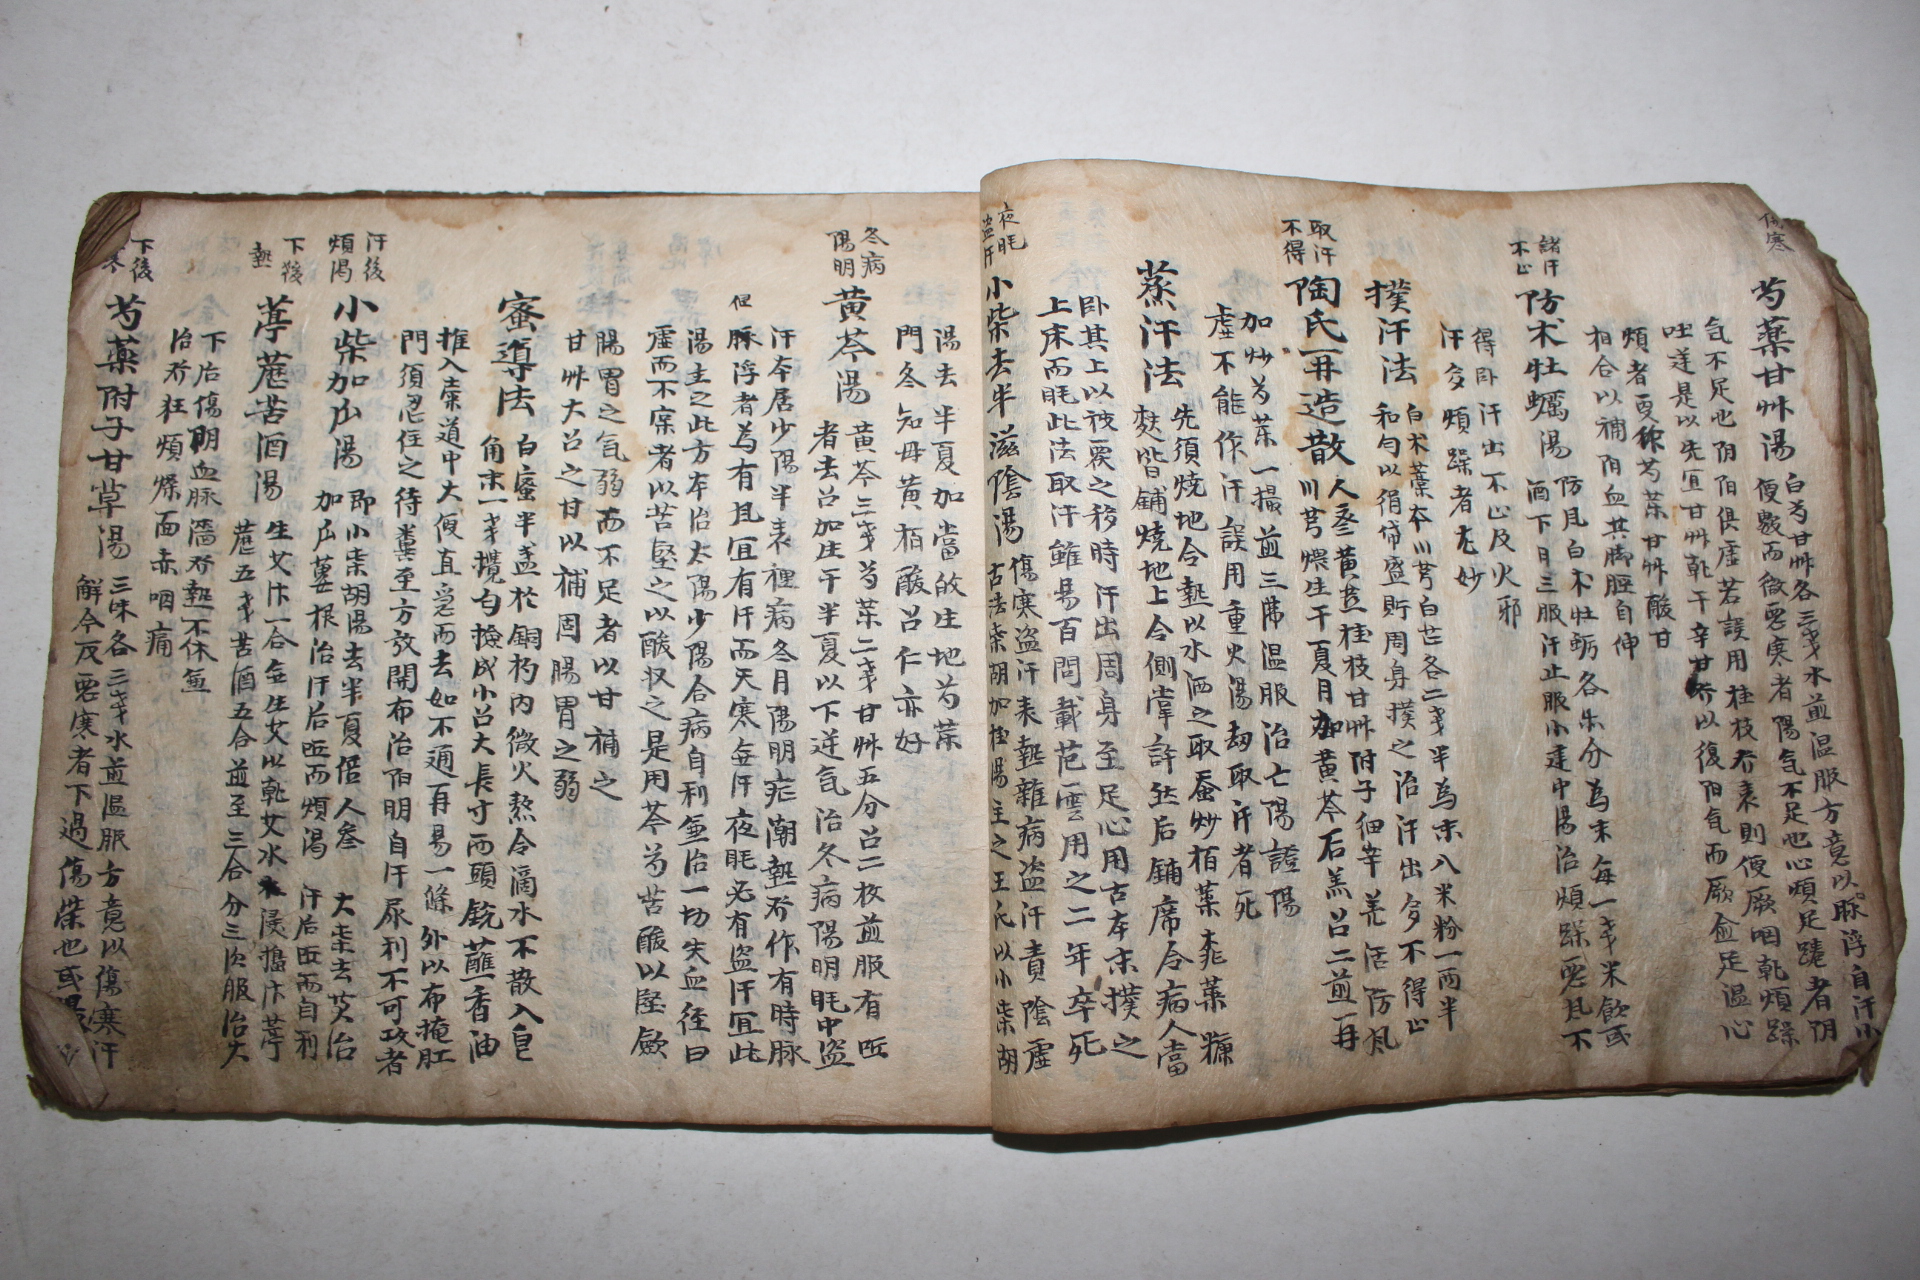 傷寒
芍藥甘艸湯
白芍甘艸各三戔水煎温服方意以脉浮自汗小
便數而微惡寒者陽气不足也心煩足踡者阴
气不足也阴阳俱虛若誤用桂枝芥表則便厥咽乾煩躁
吐逆是以先宜甘艸乾干辛甘芥以復阳气而厥愈足温心
煩者更稼芍藥甘艸酸甘
相合以補阴血其脚脛自伸
諸汗
不止
防术牡蠣湯
防风白术牡蛎各朱分為末每一戔米飮或
酒下日三服汗止服小建中湯治煩躁惡风不
得卧汗出不止及火邪
汗多煩躁者尤妙
撲汗法
白术藁本川芎白芷各二戔半為末入米粉一两半
和匀以絹帒盛貯周身撲之治汗出多不得止
取汗
不得
陶氏再造散
人參黄茋桂枝甘艸附子细辛羌活防风
川芎煨生干夏月加黄芩石羔召二煎再
加炒芍藥一撮煎三沸温服治亡陽證陽
虛不能作汗誤用重火湯刼取汗者死
蒸汗法
先須燒地令熱以水洒之取蚕炒栢葉桃葉糠
麩皆鋪燒地上令側掌許然后鋪席令病人當
卧其上以被覆之移時汗出周身至足心用古本末撲之
上床而眠此法取汗雖易百問載范雲用之二年卒死
夜眠
盜汗
小柴去半滋陰湯
傷寒盜汗表熱雜病盜汗責陰虛
古法柴胡加桂湯主之王氏以小柴胡
湯去半夏加當歸生地芍藥
門冬知母黄栢酸召仁亦好
冬病
陽明
黄芩湯
黄芩三戔芍藥二戔甘艸五分召二枚煎服有
者去召加生干半夏以下逆气治冬病陽明眠中盜
汗本居少陽半表裡病冬月陽明症潮熱芥作有時脉
但
脉浮者為有且宜有汗而天寒無汗夜眠必有盜汗宜此
湯主之此方本治太陽少陽合病自利無治一切失血徑曰
虛而不寔者以苦堅之以酸収之是用芩芍苦酸以堅歛
腸胃之气弱而不足者以甘補之
甘艸大召之甘以補固腸胃之弱
蜜導法
白蜜半盞於銅杓内微火熬令滴水不散入皂
角末一戔攪匀撿成小召大長寸两頭銳蘸香油
推入粪道中大便直急而去如不通再易一條外以布掩肛
門須忍住之待糞至方放開布治阳明自汗尿利不可攻者
汗後
煩渴
小柴加瓜湯
即小柴胡湯去半夏倍人參
加瓜蔞根治汗后而煩渴
大柰去芠治
汗后而自利
下後
熱
葶藶苦酒湯
生艾汁一合無生艾以乹艾水浸搗汁葶
藶五戔苦酒五合煎至三合分三次服治大
下后傷阴血脉濇芥熱不休無
治芥狂煩燥面赤咽痛
下後
寒
芍藥附子甘草湯
三味各三戔水煎温服方意以傷寒汗
解今反惡寒者下過傷榮也或